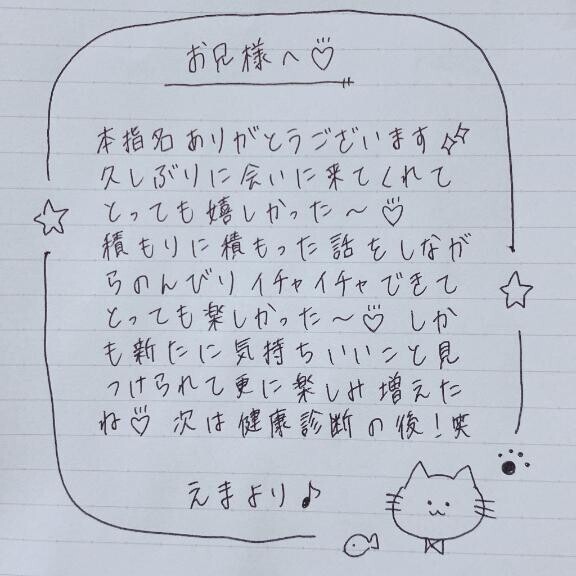 お兄様へ♡
本指名ありがとうございます✨
久しぶりに会いに来てくれて
とっても嬉しかった〜♡
積もりに積もった話をしなが
らのんびりイチャイチャできて
とっても楽しかった〜♡ しか
も新たに気持ちいいこと見
つけられて更に楽しみ増えた
ね♡ 次は健康診断の後！笑
えまより♪